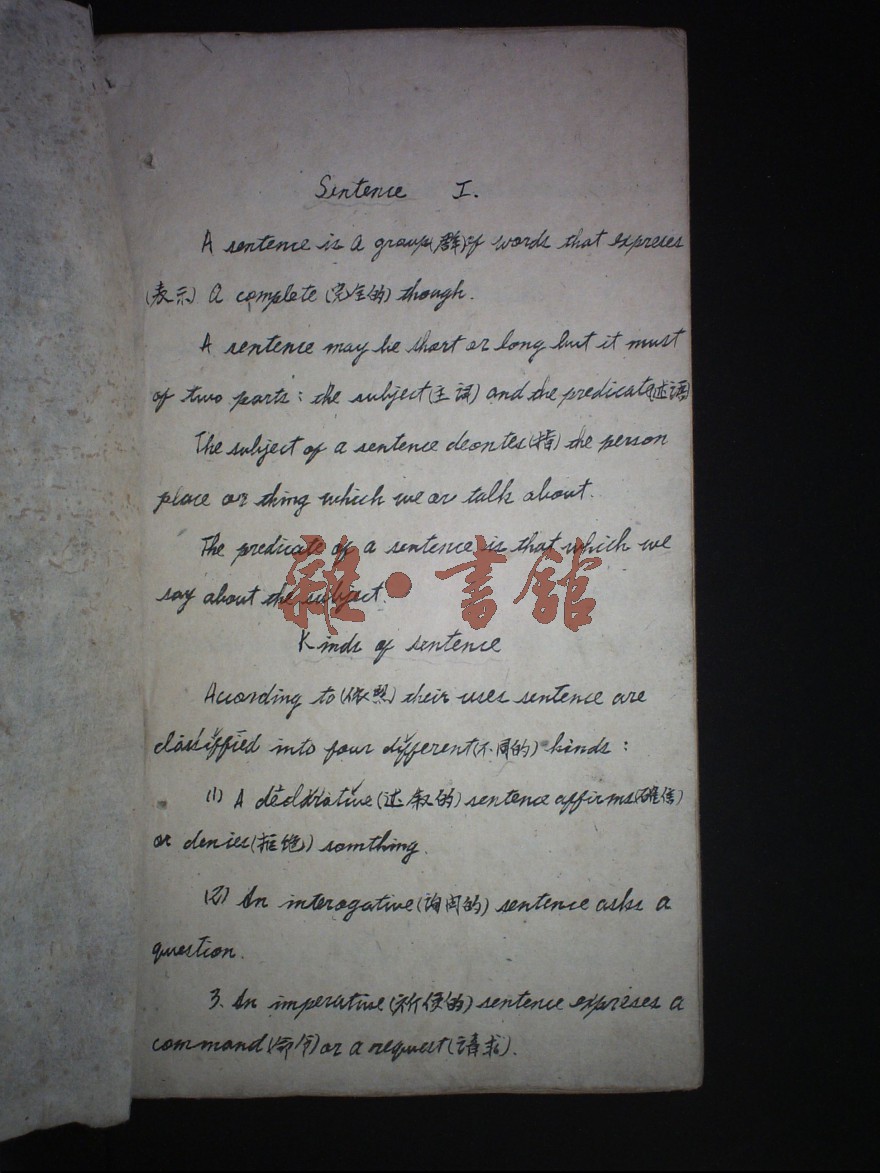 Sentence I.
A sentence is a group(群)of words that expreses
(表示) a complete (完全的) though.
A sentence may be short or long but it must
of two parts: the subject(主语) and the predicate(述语)
The subject of a sentence deontes(指) the person
place or thing which we or talk about.
The predicate of a sentence is that which we
say about the subject.
雜·書館
Kinds of sentence
Acording to(依照) their uses sentence are
classiffied into four different(不同的) kinds:
(1) A declarative(述叙的) sentence affirms(确信)
or denies(拒绝) somthing.
(2) An interogative(询问的) sentence asks a
question.
3. An imperative(祈使的) sentence expreses a
command(命令) or a request(请求).